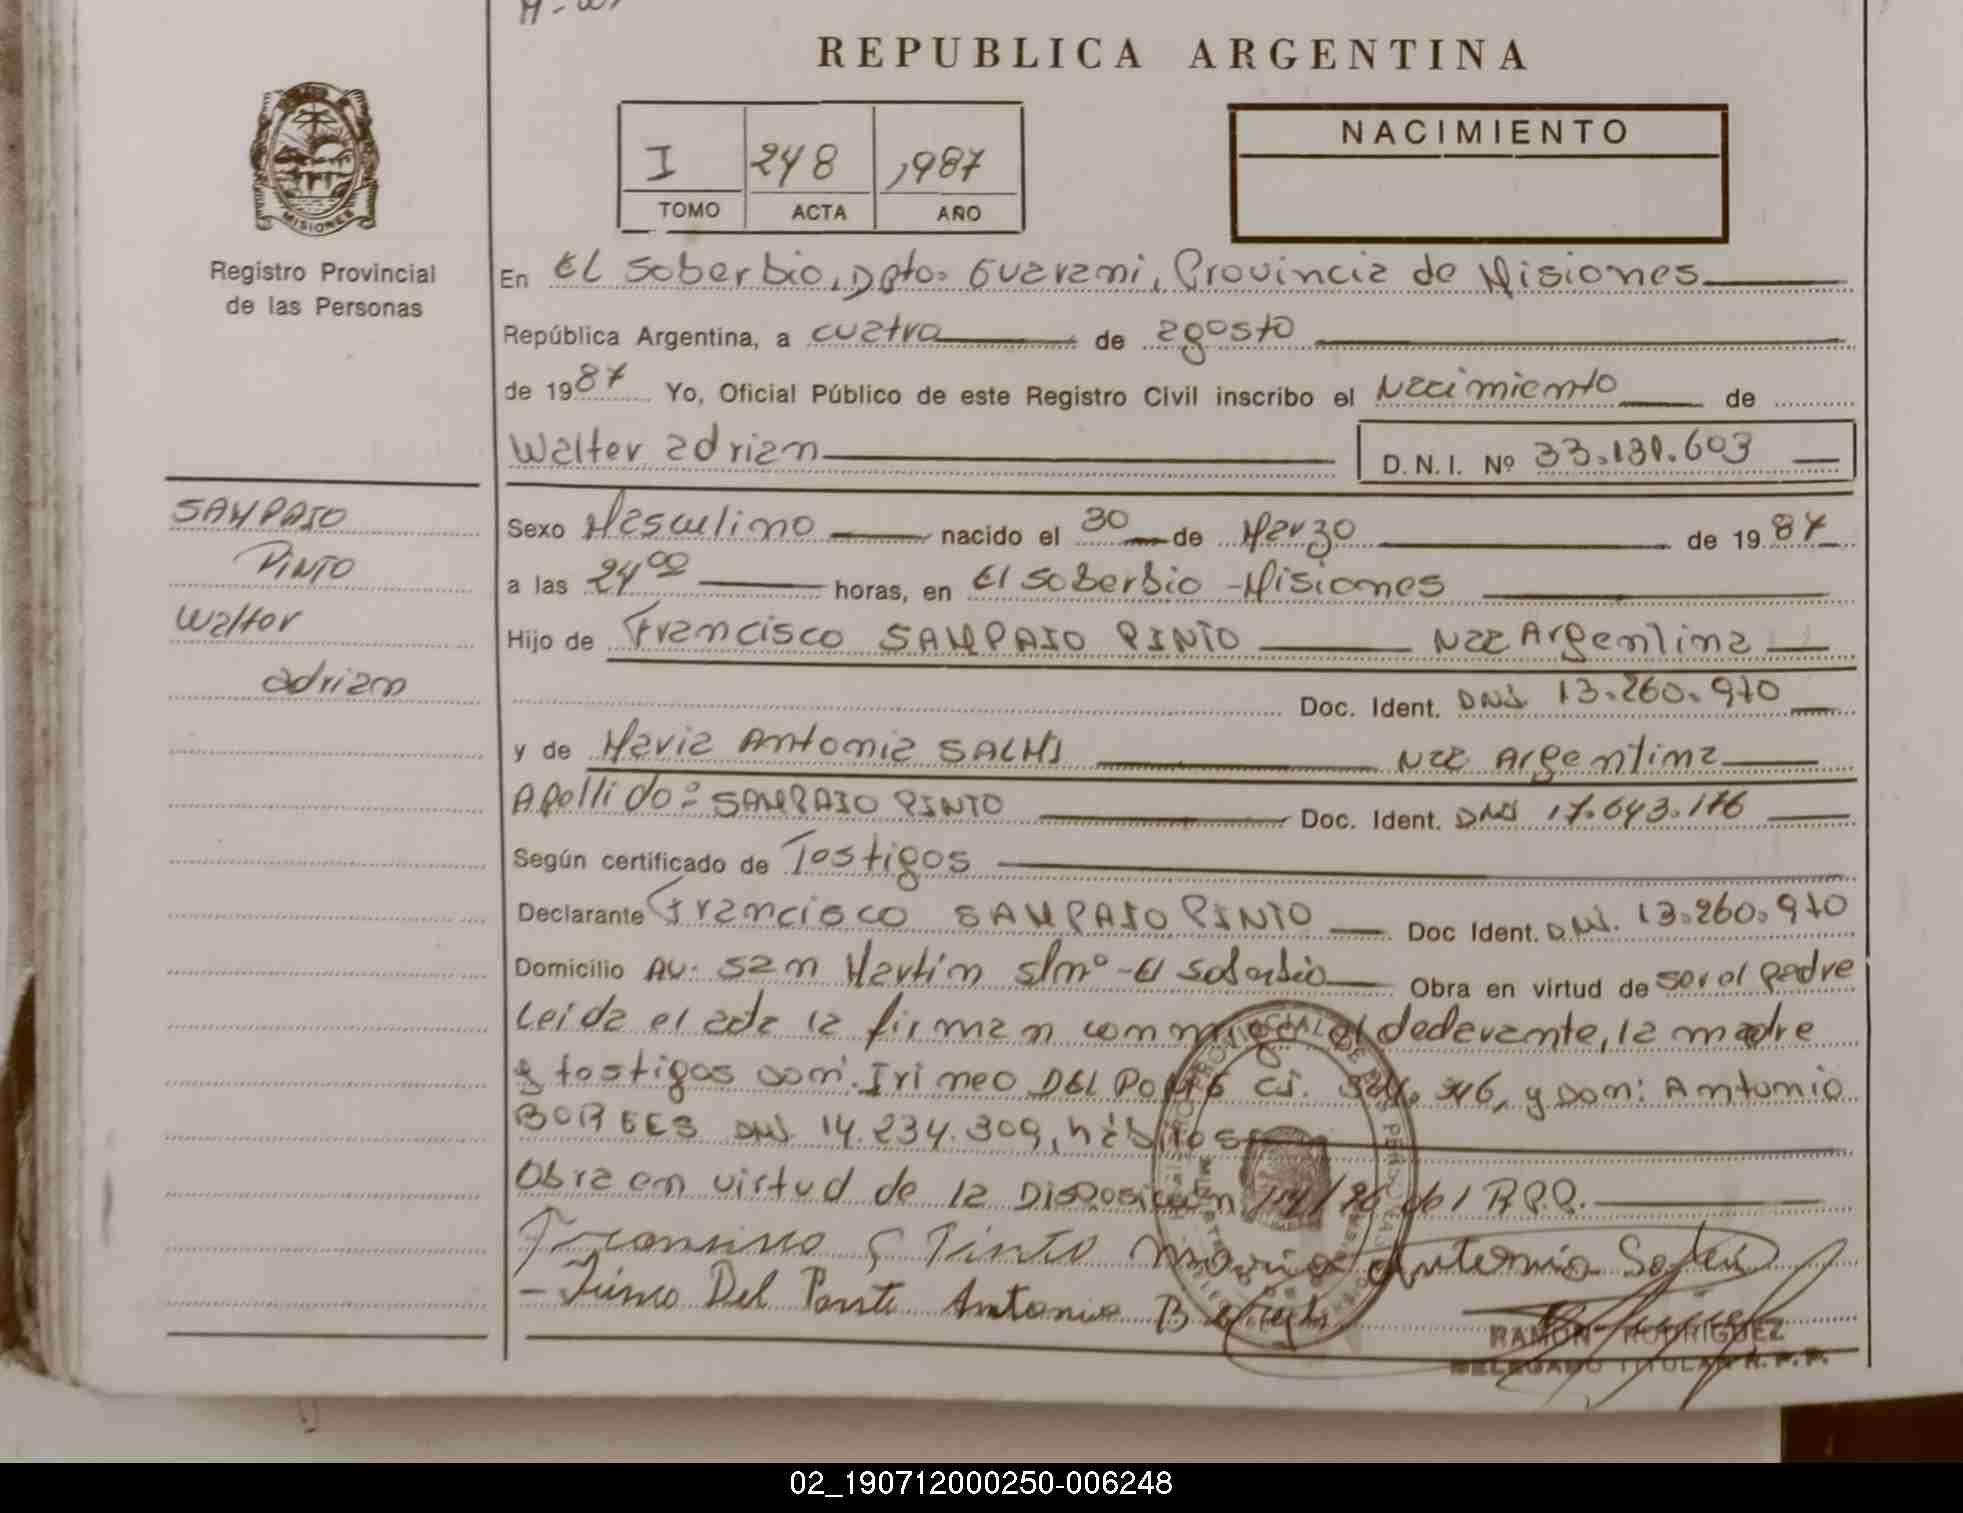 REPUBLICA ARGENTINA
I 248 1987
TOMO ACTA AÑO
NACIMIENTO
MISIONES
Registro Provincial
de las Personas
En El Soberbio, Dpto: Guarani, Provincia de Misiones
República Argentina, a cuatro de agosto
de 1987 Yo, Oficial Público de este Registro Civil inscribo el Nacimiento de
Walter adrian D.N.I. Nº 33.131.603
SAMPAIO
PINTO
Walter
adrian
Sexo Masculino nacido el 30 de Marzo de 1987
a las 24 00 horas, en El Soberbio - Misiones
Hijo de Francisco SAMPAIO PINTO Nac Argentina
Doc. Ident. DNI 13.260.970
y de Maria Antonia SALHI Nac Argentina
Apellido: SAMPAIO PINTO Doc. Ident. DNI 17.643.176
Según certificado de Testigos
Declarante Francisco SAMPAIO PINTO Doc Ident. DNI. 13.260.970
Domicilio AV. San Martin s/nº - El Soberbio Obra en virtud de ser el padre
Leida el acta la firman conmigo el declarante, la madre
y testigos don: Irineo DEL PONTE CI. 346, y Don: Antonio
BORGES DNI 14.234.309, hábiles
Obra en virtud de la Disposición /86 del R.P.P.
Francisco S Pinto Maria Antonia
- Irineo Del Ponte Antonio Borges
RAMON RODRIGUEZ
DELEGADO TITULAR R.P.P.
02_190712000250-006248